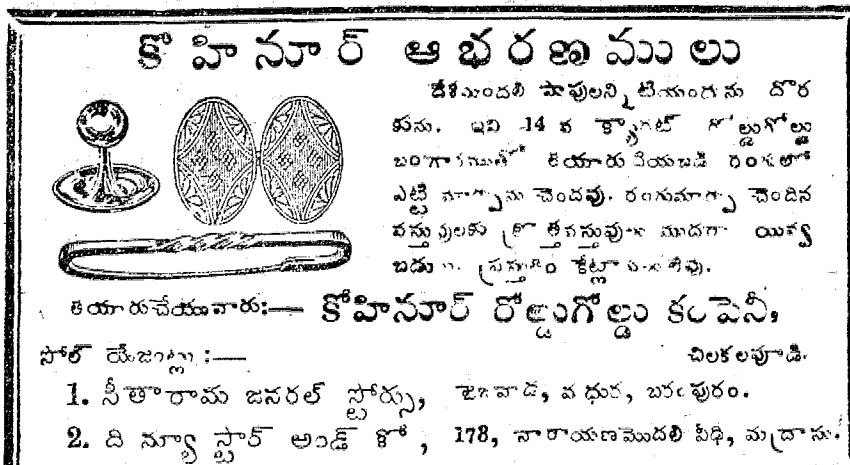 కోహినూర్ ఆభరణములు
దేశమందలి షాపులన్నిటియందును దొర
కును. ఇవి 14 వ క్యారట్ రోల్డుగోల్డు
బంగారముతో తయారు చేయబడి రంగులో
ఎట్టి మార్పును చెందవు. రంగుమార్పు చెందిన
వస్తువులకు క్రొత్తవస్తువులు ముదరా యివ్వ
బడును. ప్రస్తుతం కేట్లాగులు లేవు.
తయారుచేయువారు:— కోహినూర్ రోల్డుగోల్డు కంపెనీ,
చిలకలపూడి.
సోల్ యేజంట్లు :—
1. సీతారామ జనరల్ స్టోర్సు, బెజవాడ, మధుర, బరంపురం.
2. ది న్యూ స్టార్ అండ్ కో, 178, నారాయణమొదలి వీధి, మద్రాసు.